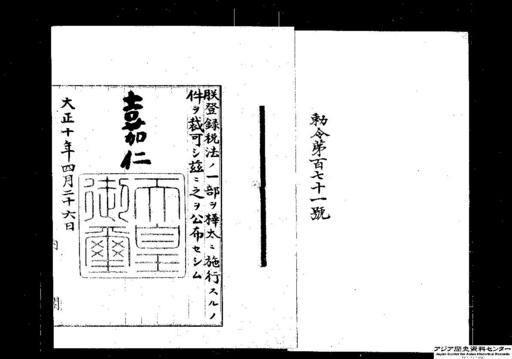 勅令第百七十一號
朕登録税法ノ一部ヲ樺太ニ施行スルノ
件ヲ裁可シ茲ニ之ヲ公布セシム
嘉仁
天皇
御璽
大正十年四月二十六日
アジア歴史資料センター
Japan Center for Asian Historical Records